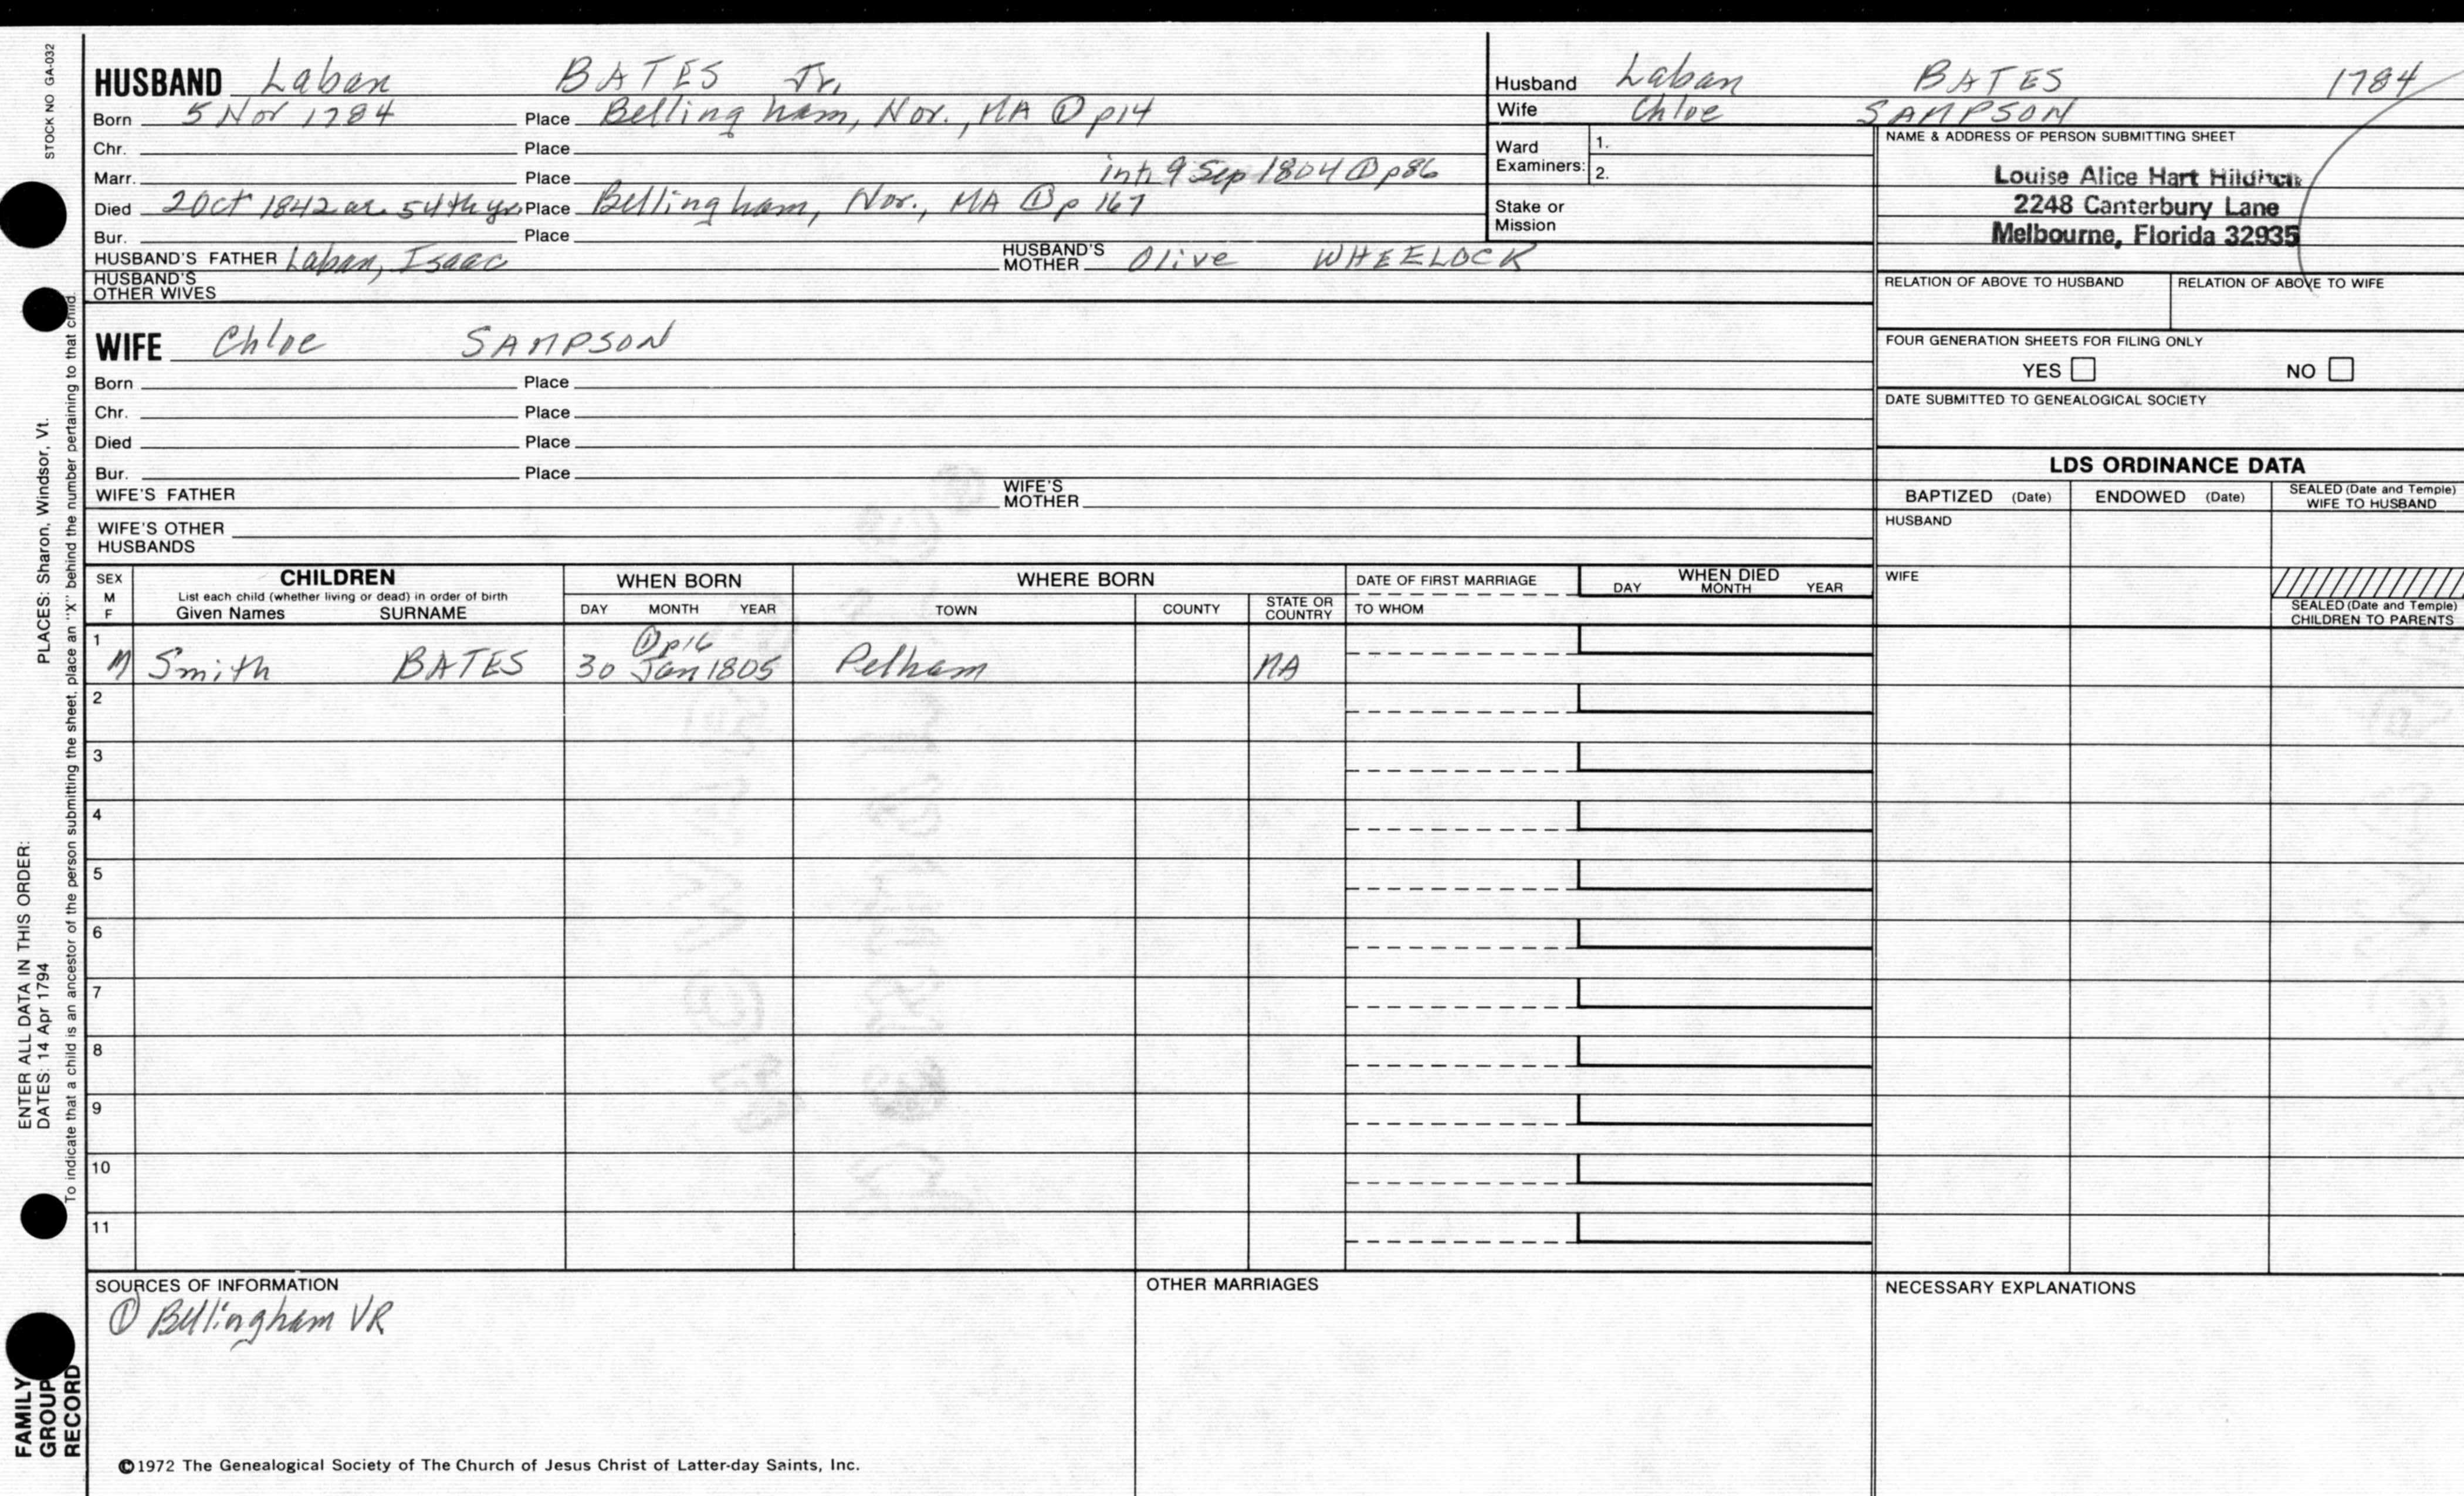 STOCK NO GA-032
HUSBAND Laban BATES Jr.
Born 5 Nov 1784 Place Bellingham, Nor., MA ① p14
Chr. Place
Marr. Place int. 9 Sep 1804 ① p86
Died 2 Oct 1842 ae. 54th yr. Place Bellingham, Nor., MA ① p 167
Bur. Place
HUSBAND'S FATHER Laban, Isaac HUSBAND'S MOTHER Olive WHEELOCK
HUSBAND'S OTHER WIVES
Husband Laban BATES 1784
Wife Chloe SAMPSON
Ward Examiners: 1.
2.
Stake or Mission
NAME & ADDRESS OF PERSON SUBMITTING SHEET
Louise Alice Hart Hilditch
2248 Canterbury Lane
Melbourne, Florida 32935
RELATION OF ABOVE TO HUSBAND RELATION OF ABOVE TO WIFE
FOUR GENERATION SHEETS FOR FILING ONLY
YES NO
DATE SUBMITTED TO GENEALOGICAL SOCIETY
WIFE Chloe SAMPSON
Born Place
Chr. Place
Died Place
Bur. Place
WIFE'S FATHER WIFE'S MOTHER
WIFE'S OTHER HUSBANDS
LDS ORDINANCE DATA
BAPTIZED (Date) ENDOWED (Date) SEALED (Date and Temple) WIFE TO HUSBAND
HUSBAND
WIFE
SEALED (Date and Temple) CHILDREN TO PARENTS
SEX M F CHILDREN WHEN BORN WHERE BORN DATE OF FIRST MARRIAGE WHEN DIED
List each child (whether living or dead) in order of birth
Given Names SURNAME DAY MONTH YEAR TOWN COUNTY STATE OR COUNTRY TO WHOM DAY MONTH YEAR
① p16
1 M Smith BATES 30 Jan 1805 Pelham MA
2
3
4
5
6
7
8
9
10
11
SOURCES OF INFORMATION
① Bellingham VR
OTHER MARRIAGES
NECESSARY EXPLANATIONS
©1972 The Genealogical Society of The Church of Jesus Christ of Latter-day Saints, Inc.
FAMILY GROUP RECORD
ENTER ALL DATA IN THIS ORDER:
DATES: 14 Apr 1794 PLACES: Sharon, Windsor, Vt.
To indicate that a child is an ancestor of the person submitting the sheet, place an "X" behind the number pertaining to that child.